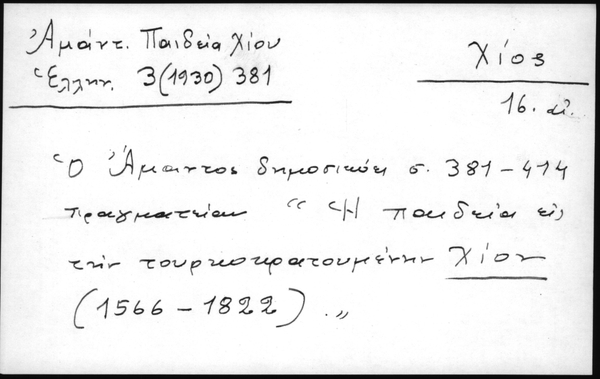 Ἀμάντ. Παιδεία Χίου
Ἑλλην. 3 (1930) 381
Χίος
16. αἰ.
Ὁ Ἄμαντος δημοσιεύει σ. 381 – 414
πραγματείαν “ Ἡ παιδεία εἰς
τὴν τουρκοκρατουμένην Χίον
(1566 – 1822) . „